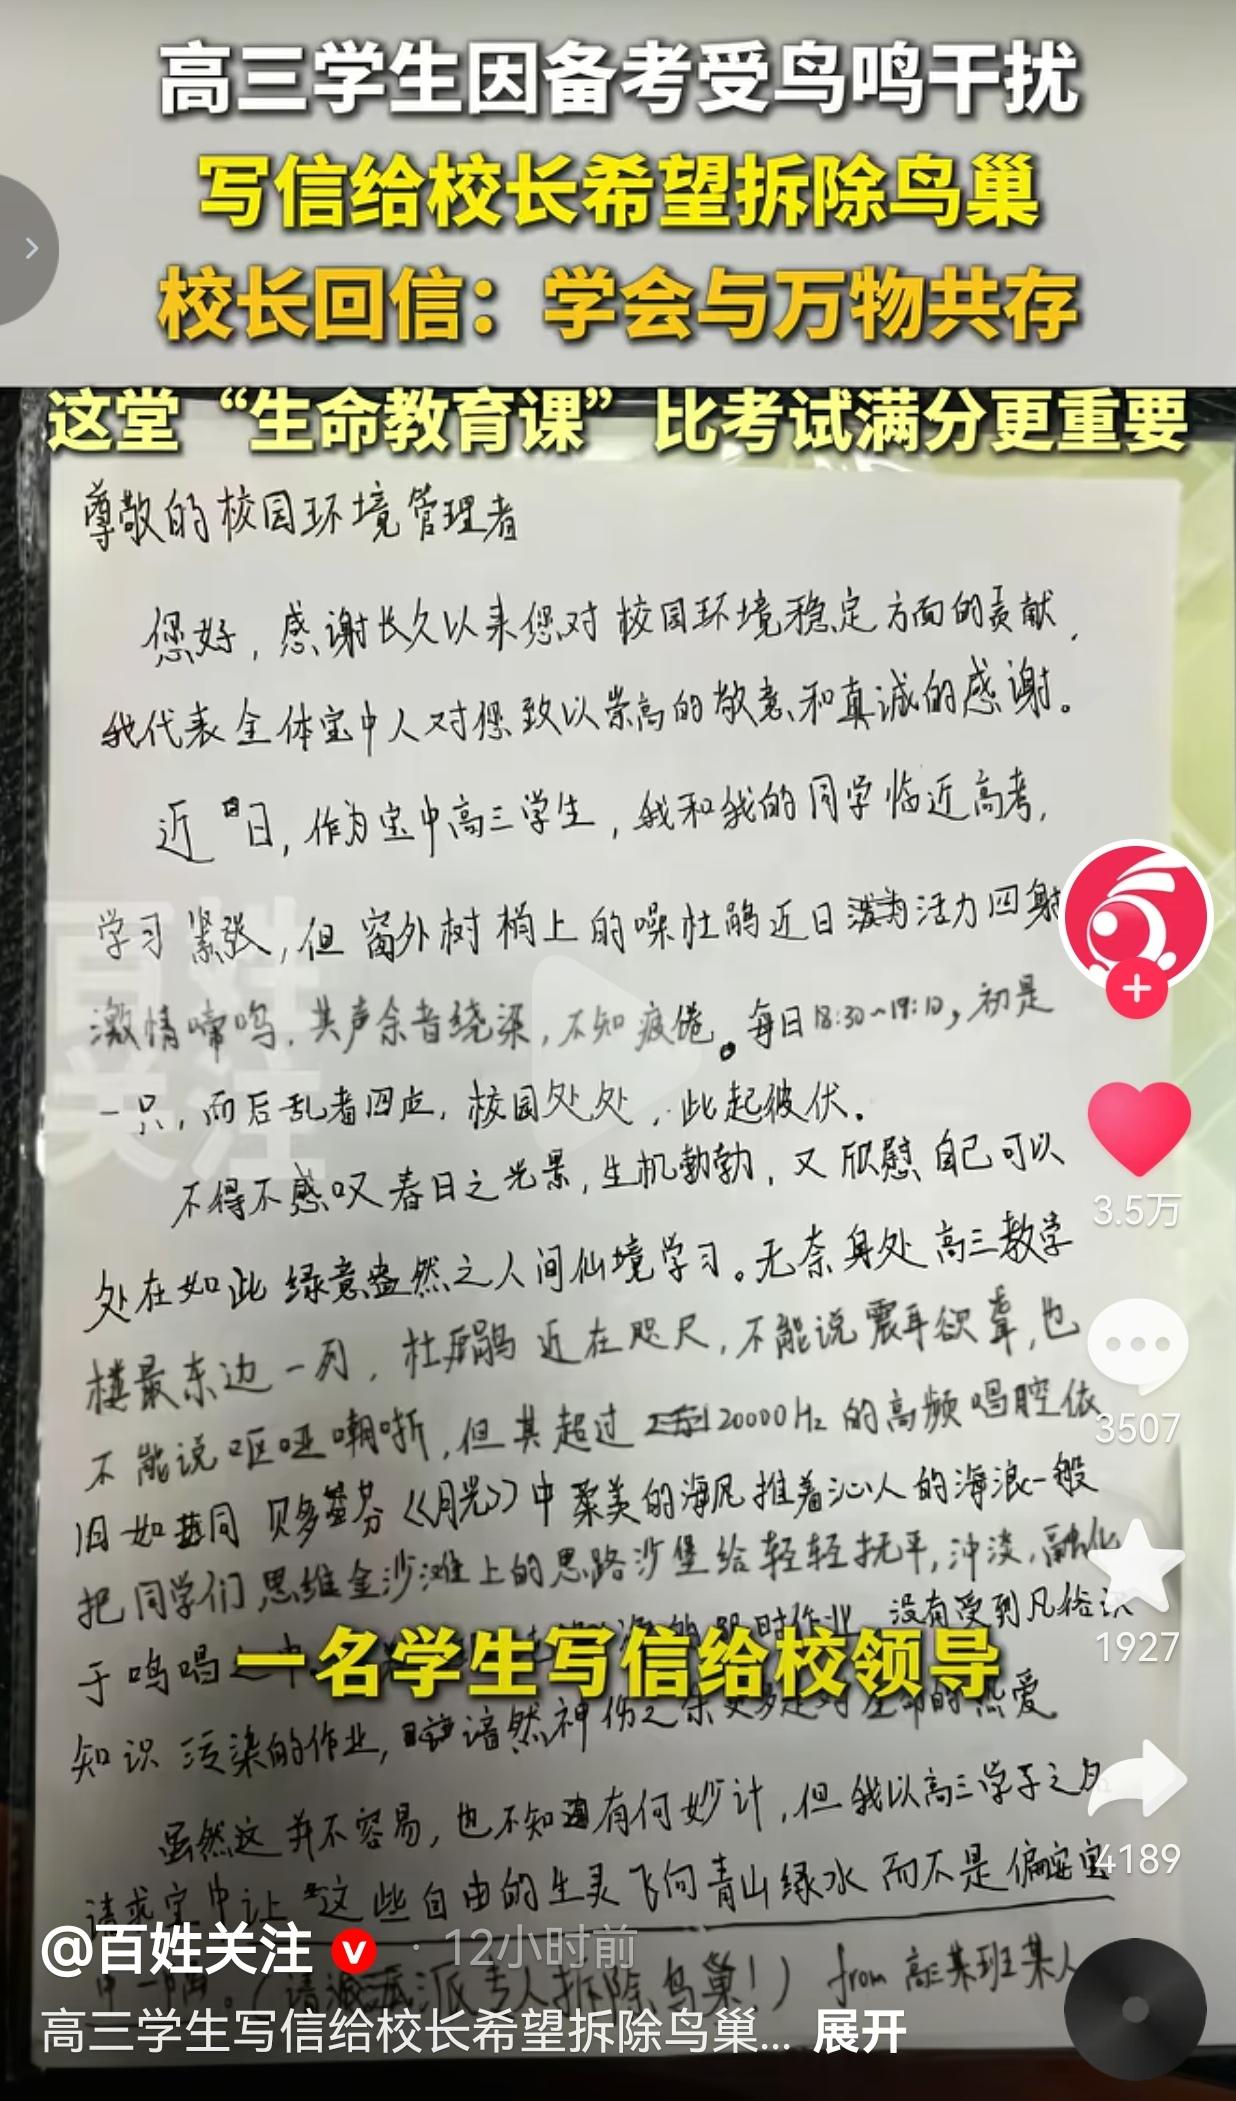 高三学生因备考受鸟鸣干扰
写信给校长希望拆除鸟巢
校长回信：学会与万物共存
这堂“生命教育课”比考试满分更重要
尊敬的校园环境管理者
您好，感谢长久以来您对校园环境稳定方面的贡献，
我代表全体宝中人对您致以崇高的敬意和真诚的感谢。
近日，作为宝中高三学生，我和我的同学临近高考，
学习紧张，但窗外树梢上的噪杜鹃近日活力四射
激情啼鸣，其声余音绕梁，不知疲倦。每日18:30~19:10，初是
一只，而后乱者四点，校园处处，此起彼伏。
不得不感叹春日之光景，生机勃勃，又欣慰自己可以
处在如此绿意盎然之人间仙境学习。无奈身处高三教学
楼最东边一列，杜鹃近在咫尺，不能说震耳欲聋，也
不能说呕哑嘲哳，但其超过20000Hz的高频唱腔依
旧如同贝多芬《月光》中柔美的海风推着沁人的海浪一般
把同学们思维金沙滩上的思路沙堡给轻轻抚平，冲淡，融化
于鸣唱之中。的限时作业，没有受到凡俗
一名学生写信给校领导
知识污染的作业，黯然神伤之余更多是对生命的热爱
虽然这并不容易，也不知有何妙计，但我以高三学子之名
请求宝中让这些自由的生灵飞向青山绿水而不是偏安宝
中一隅。（请派专人拆除鸟巢！）from 高三某班某人
百姓
关注
3.5万
3507
1927
4189
@百姓关注 · 12小时前
高三学生写信给校长希望拆除鸟巢... 展开